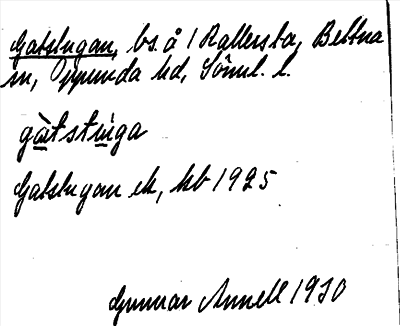 Gatstugan, bs. å 1 Rallersta, Bettna
sn, Oppunda hd, Söml. l.
gàtstuga
Gatstugan ek, kb 1925
Gunnar Annell 1930